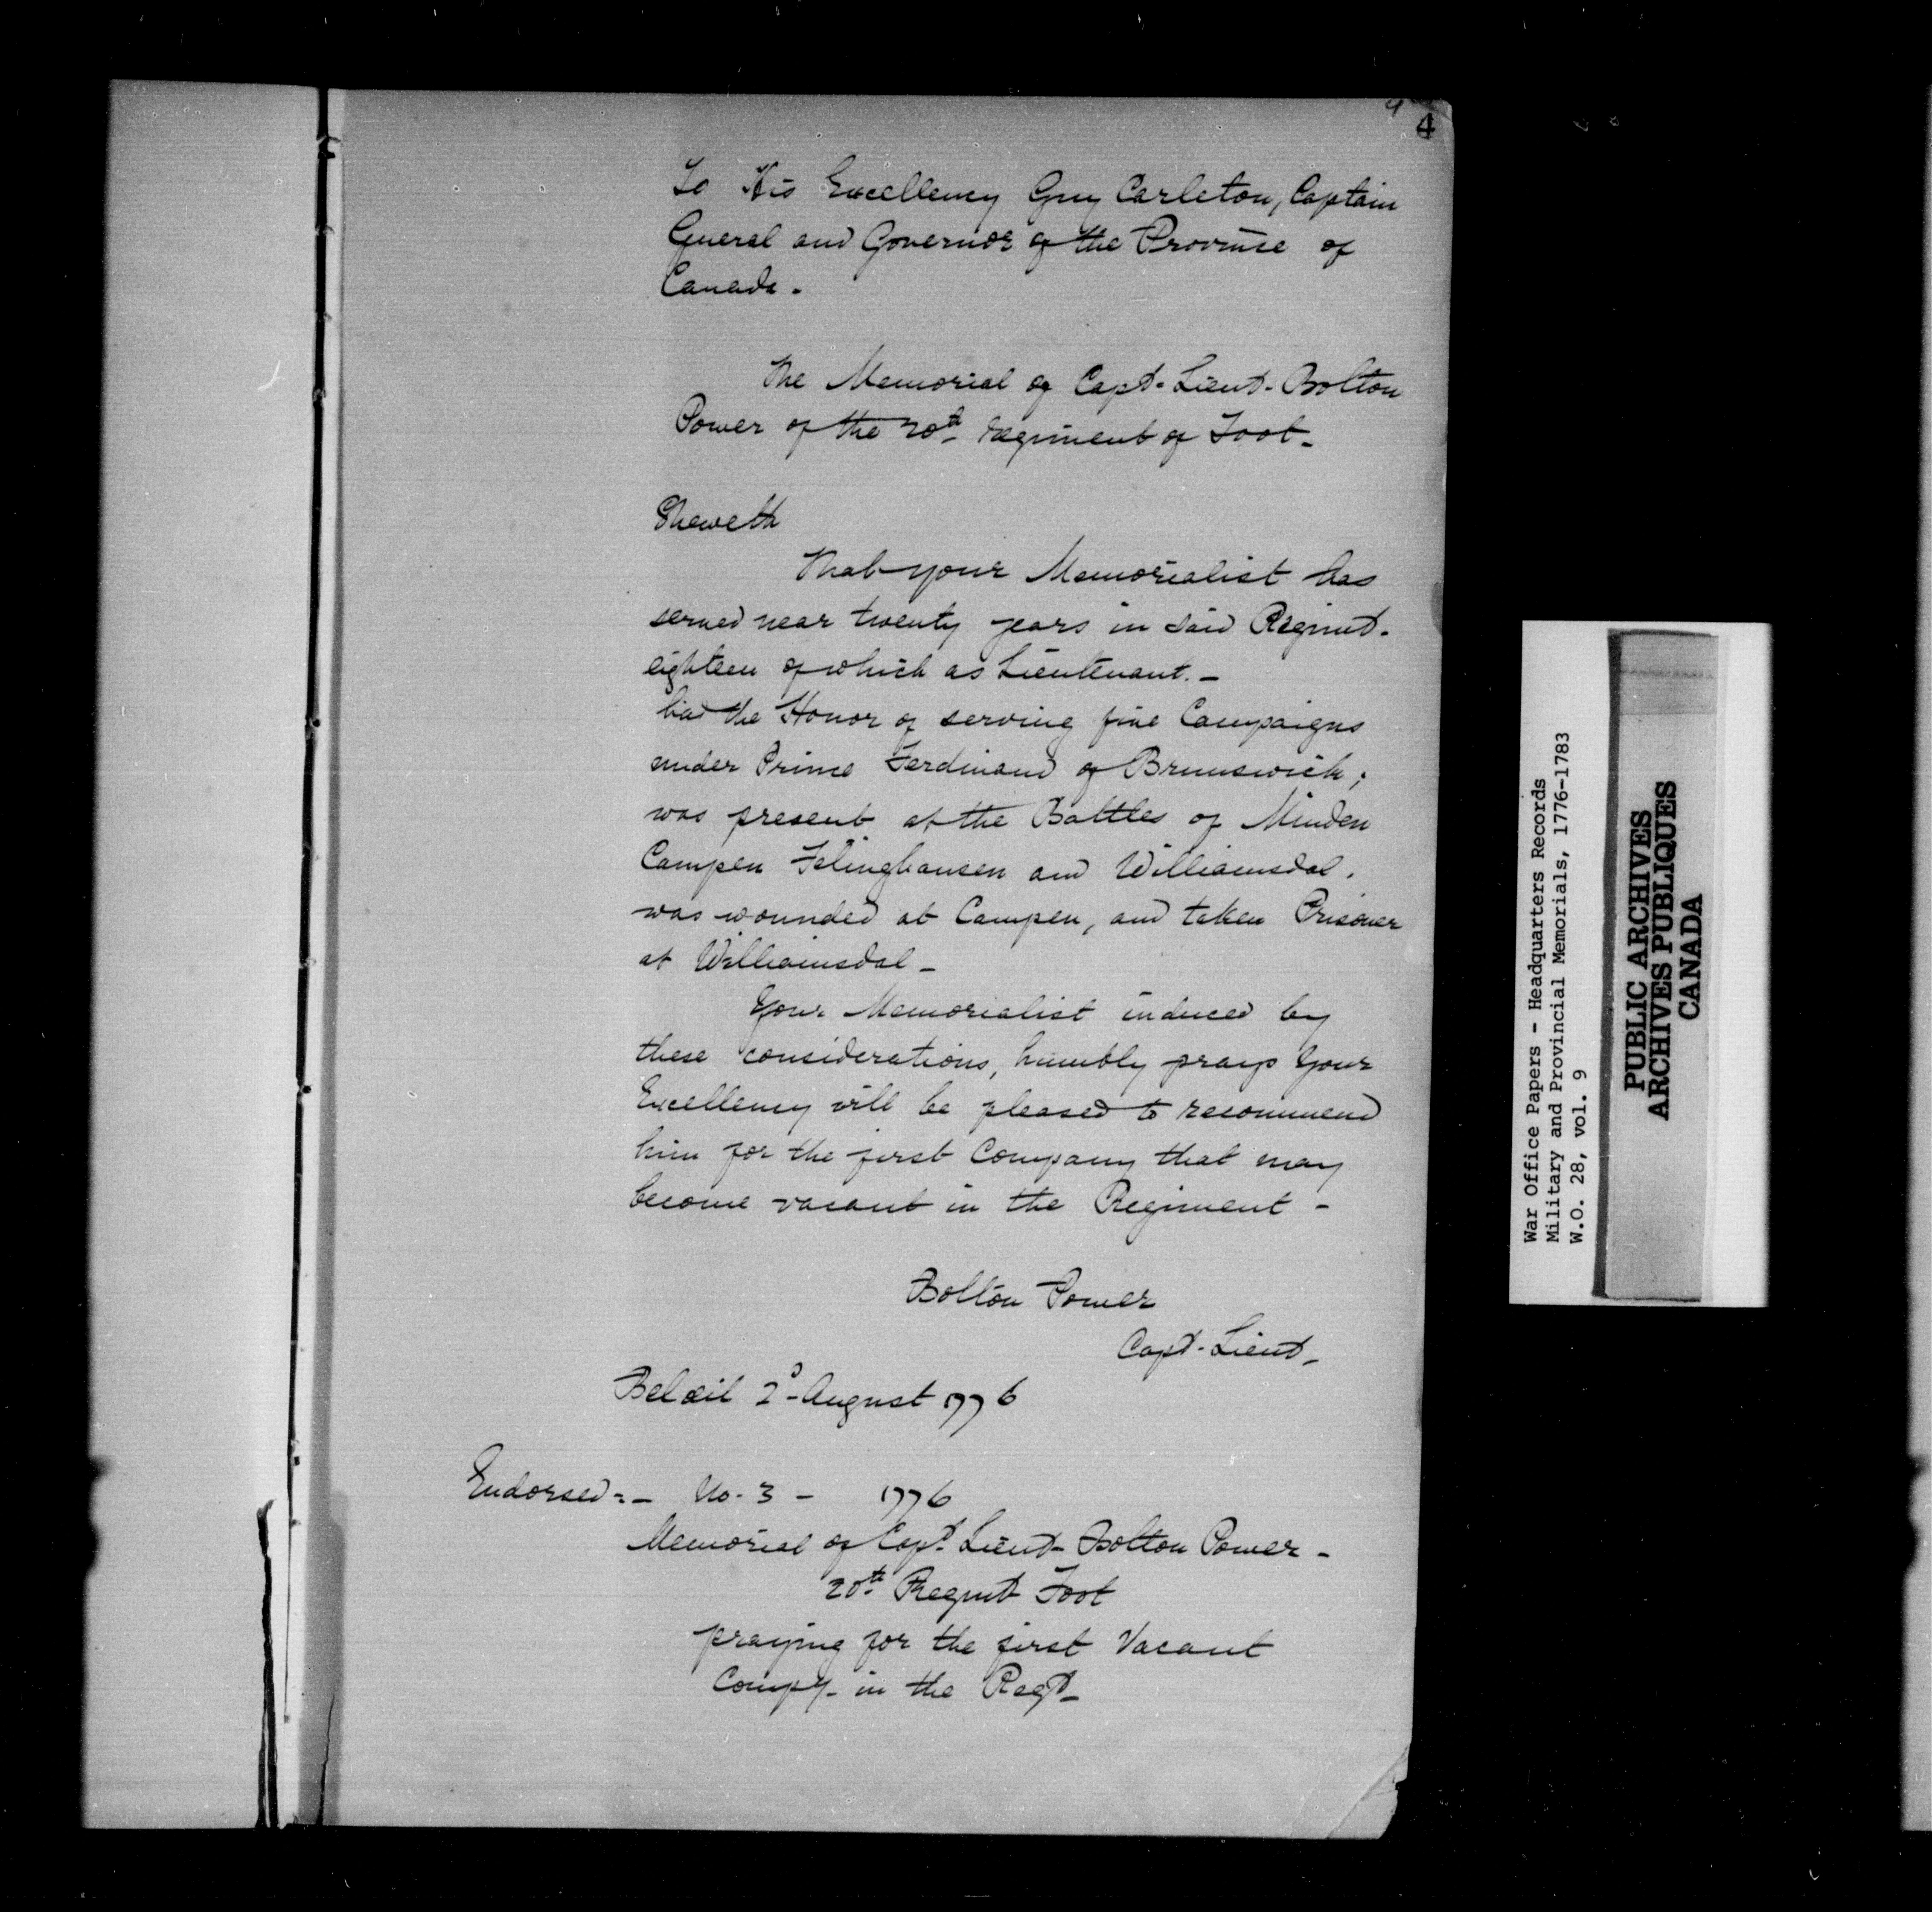 4
To His Excellency Guy Carleton, Captain
General and Governor of the Province of
Canada.
The Memorial of Capt. Lieut. Bolton
Power of the 20th Regiment of Foot.
Sheweth
That your Memorialist has
served near twenty years in said Regimt.
eighteen of which as Lieutenant. -
had the Honor of serving five Campaigns
under Prince Ferdinand of Brunswick;
was present at the Battles of Minden
Campen Felinghausen and Williamsdal.
was wounded at Campen, and taken Prisoner
at Williamsdal -
Your Memorialist induced by
these considerations, humbly prays your
Excellency will be pleased to recommend
him for the first Company that may
become vacant in the Regiment -
Bolton Power
Capt. Lieut.
Belœil 2d August 1776
Endorsed:- No. 3 - 1776
Memorial of Capt. Lieut. Bolton Power -
20th Regmt Foot
praying for the first Vacant
Compy. in the Regt.
War Office Papers - Headquarters Records
Military and Provincial Memorials, 1776-1783
W.O. 28, vol. 9
PUBLIC ARCHIVES
ARCHIVES PUBLIQUES
CANADA